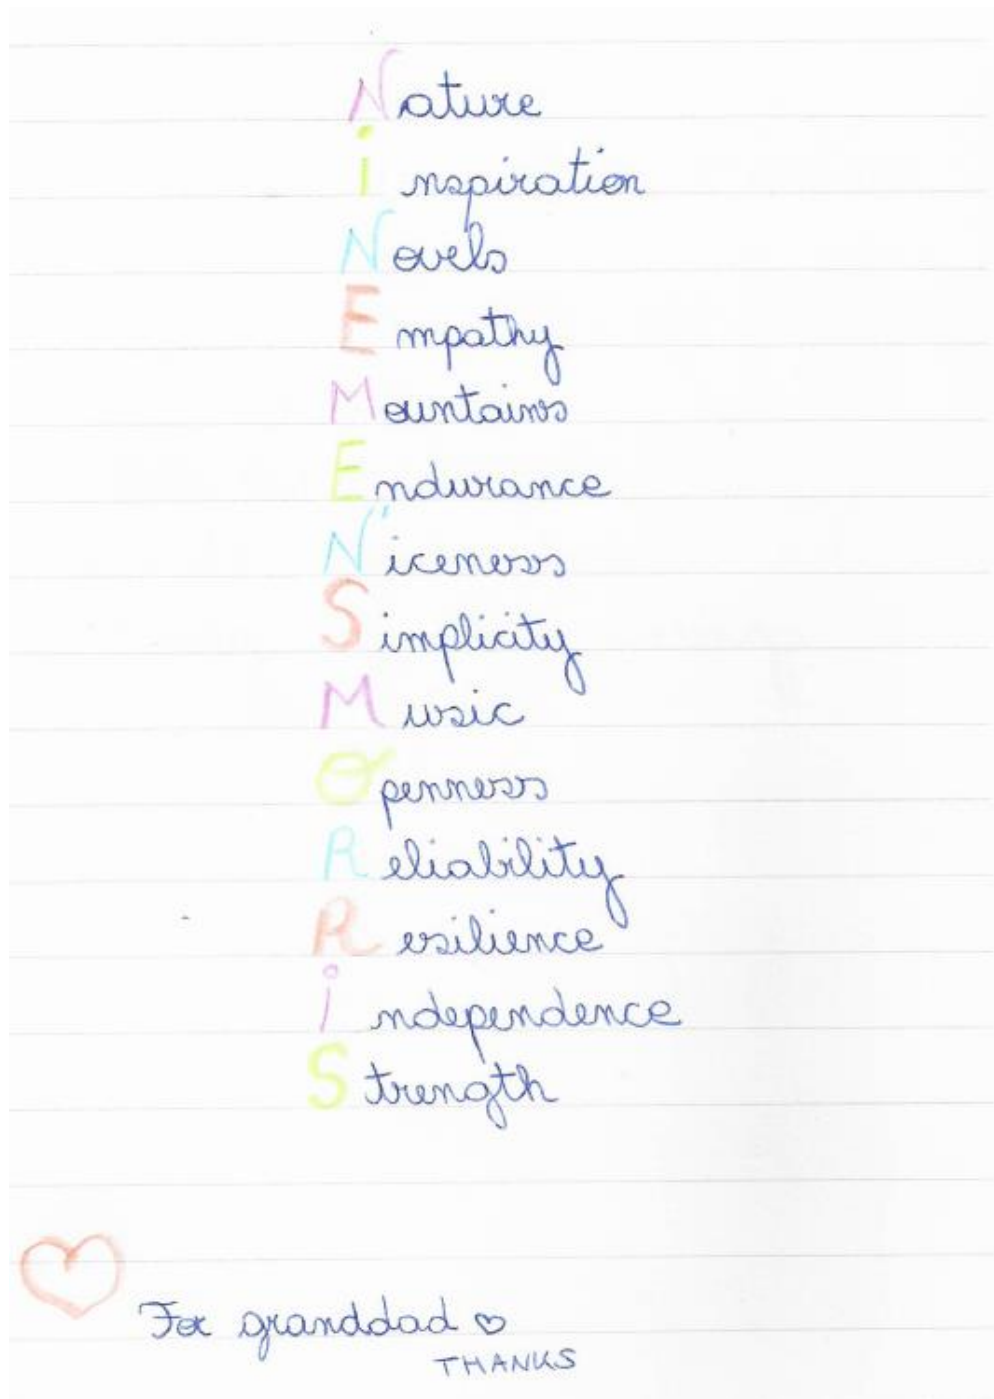 Nature
inspiration
Novels
Empathy
Mountains
Endurance
Niceness
Simplicity
Music
Openness
Reliability
Resilience
independence
Strength
For granddad ♡
THANKS